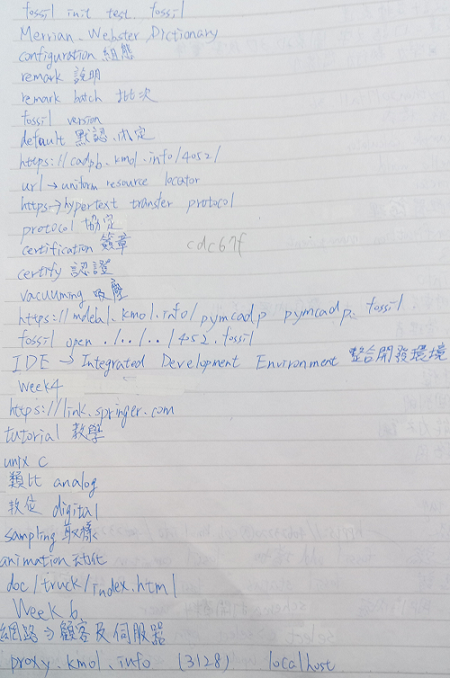 fossil init test. fossil
Merrian. Webster Dictionary
configuration 組態
remark 說明
remark batch 批次
fossil version
default 默認、內定
https://cadpb.kmol.info/4052/
url → uniform resource locator
https → hypertext transfer protocol
protocol 協定
certification 簽章 cdc67f
certify 認證
vacuuming 吸塵
https://mdeal.kmol.info/pymcadp pymcadp. fossil
fossil open ./../../452.fossil
IDE → Integrated Development Environment 整合開發環境
Week4
https://link.springer.com
tutorial 教學
unix c
類比 analog
數位 digital
sampling 取樣
animation 动化
doc/truck/index.html
Week 6
網路 → 顧客及伺服器
proxy.kmol.info (3128) localhost